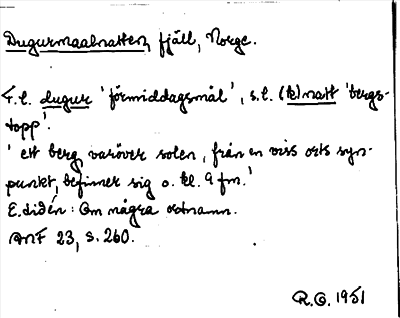 Dugurmaalnatten, fjäll, Norge.
F.l. dugur 'förmiddagsmål', s.l. (k)natt 'bergs-
topp'.
'ett berg, varöver solen, från en viss orts syn-
punkt, befinner sig o. kl. 9 fm.'
E. Lidén: Om några ortnamn.
ANF 23, s. 260.
R.G. 1951